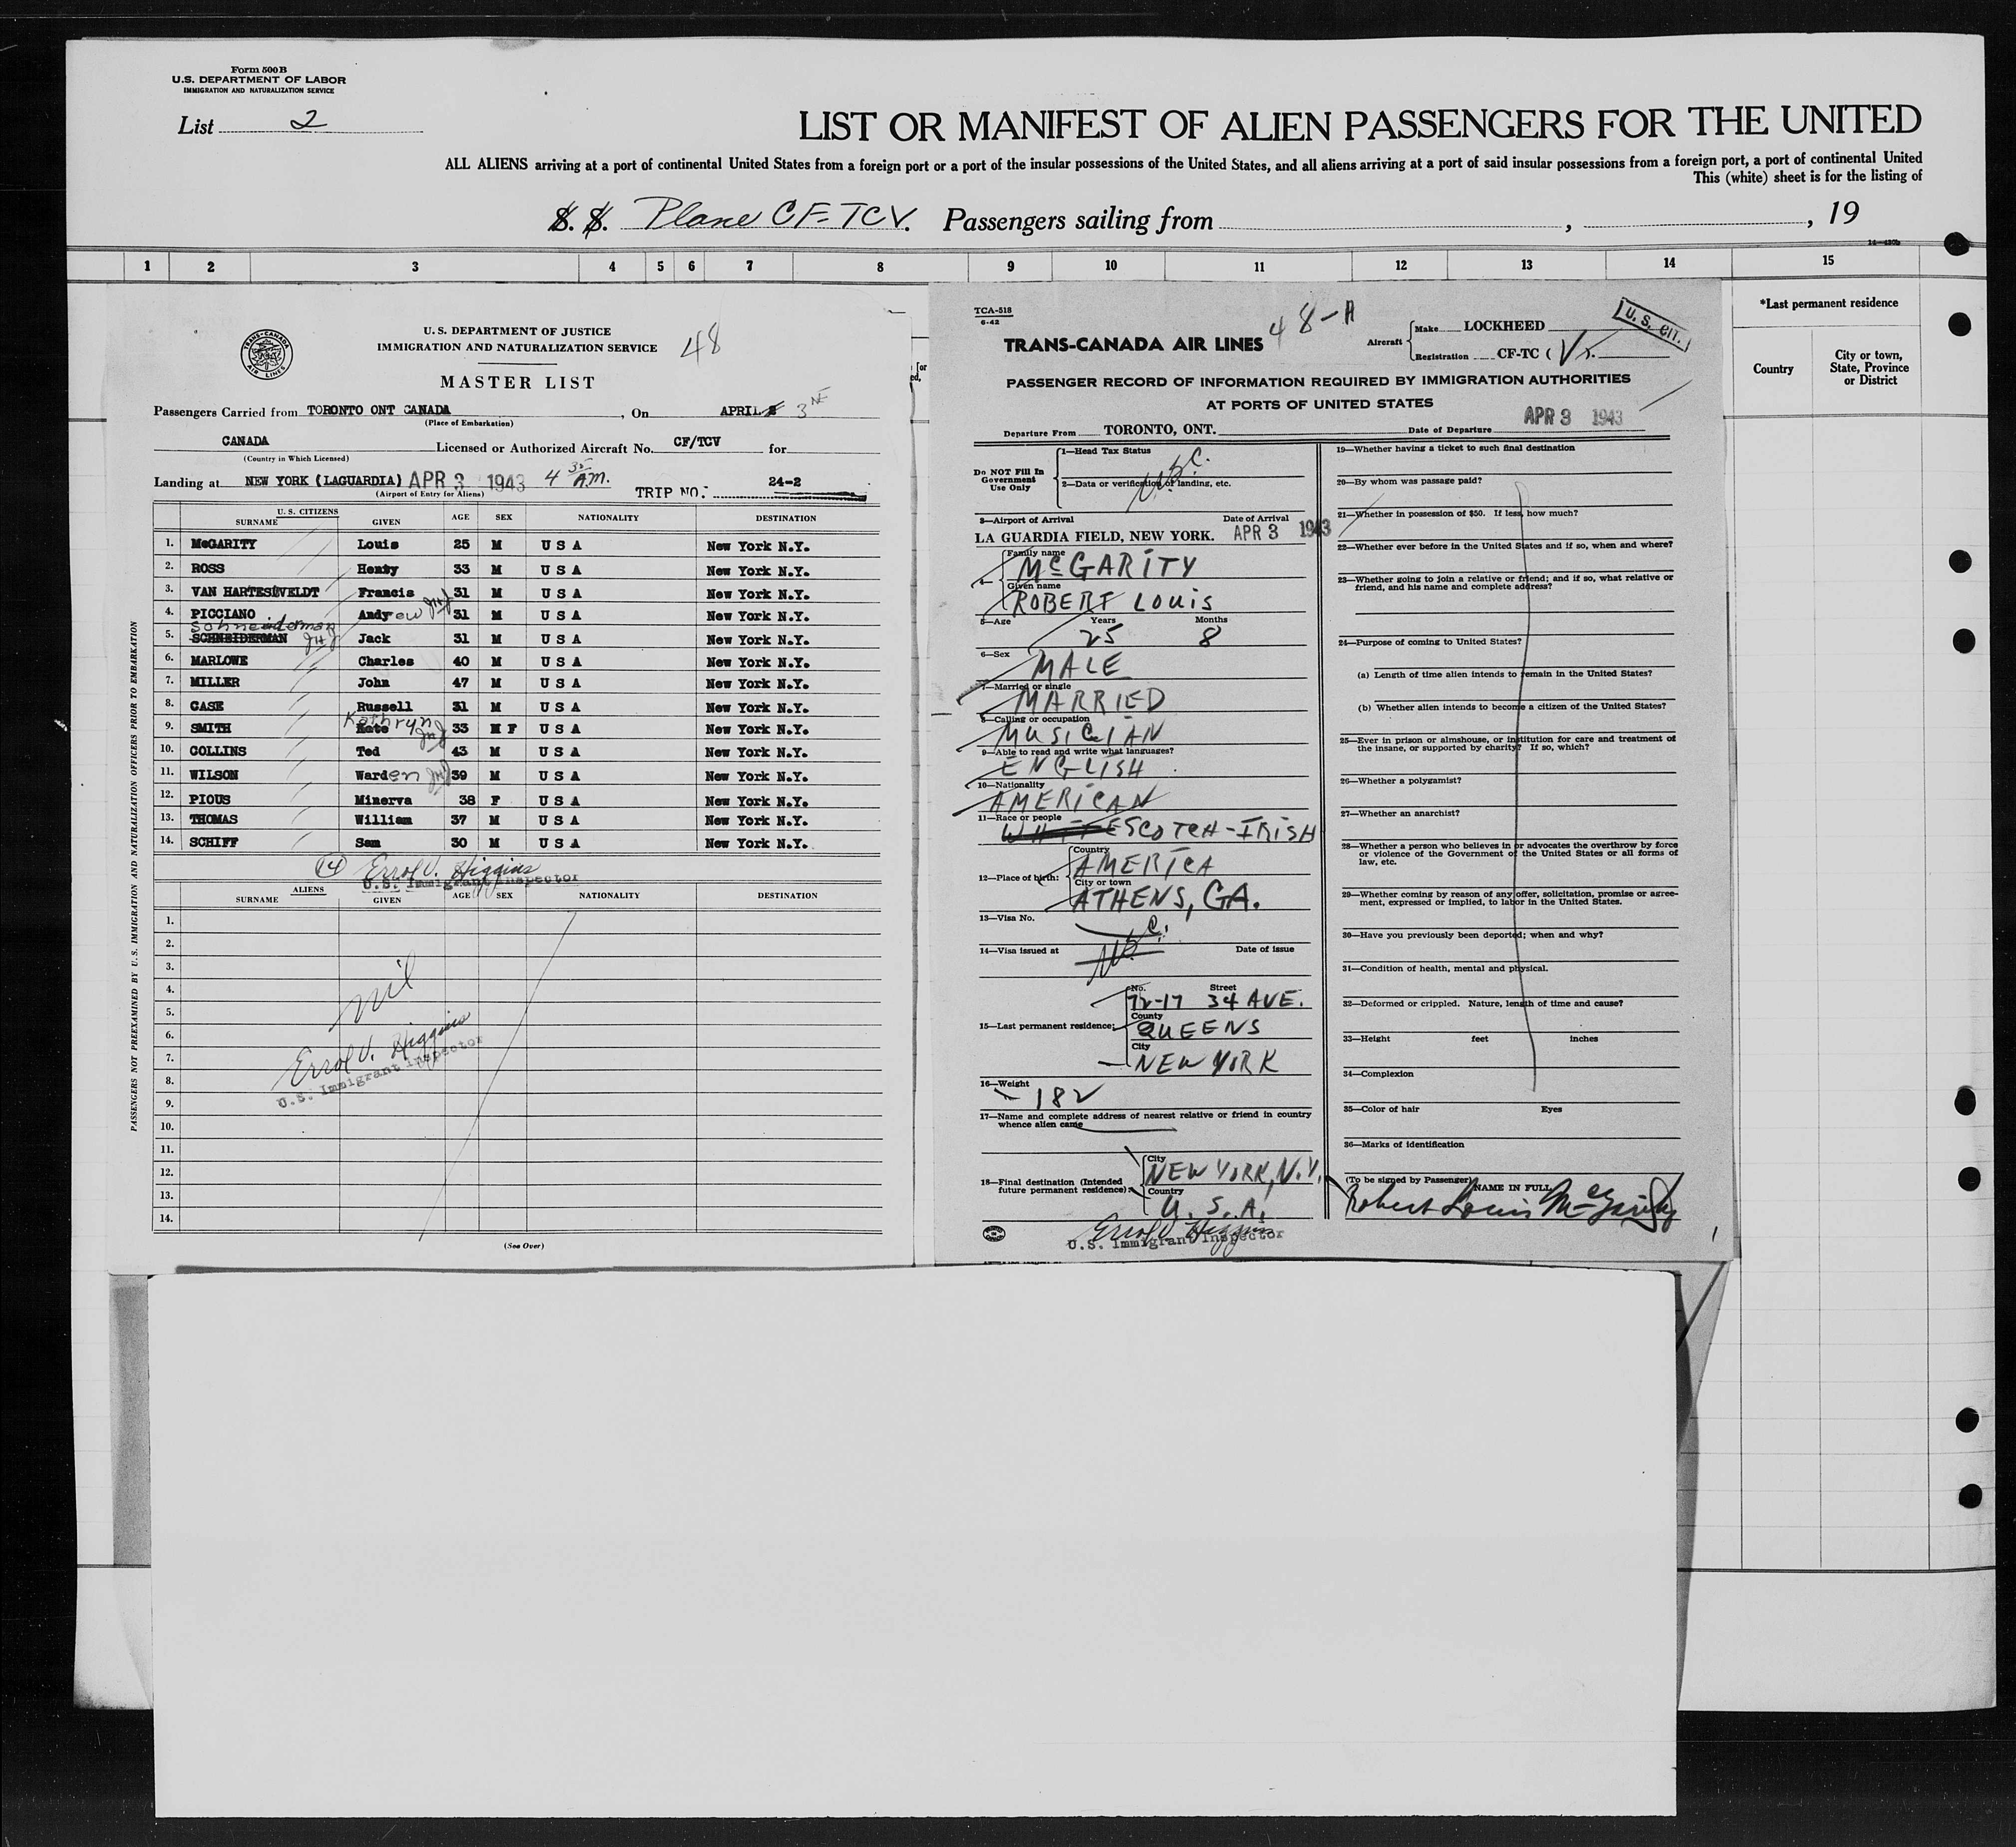 Form 500B
U.S. DEPARTMENT OF LABOR
IMMIGRATION AND NATURALIZATION SERVICE
List 2
LIST OR MANIFEST OF ALIEN PASSENGERS FOR THE UNITED
ALL ALIENS arriving at a port of continental United States from a foreign port or a port of the insular possessions of the United States, and all aliens arriving at a port of said insular possessions from a foreign port, a port of continental United
This (white) sheet is for the listing of
S. S. Plane CF-TCV. Passengers sailing from , , 19
1 2 3 4 5 6 7 8 9 10 11 12 13 14 15
*Last permanent residence
Country
City or town, State, Province or District
TRANS-CANADA AIR LINES
U. S. DEPARTMENT OF JUSTICE
IMMIGRATION AND NATURALIZATION SERVICE 48
MASTER LIST
Passengers Carried from TORONTO ONT CANADA , On APRIL 3
(Place of Embarkation)
CANADA Licensed or Authorized Aircraft No. CF/TCV for
(Country in Which Licensed)
Landing at NEW YORK (LAGUARDIA) APR 3 1943 4 35 A.M. TRIP NO: 24-2
(Airport of Entry for Aliens)
U. S. CITIZENS
SURNAME GIVEN AGE SEX NATIONALITY DESTINATION
1. McGARITY Louis 25 M U S A New York N.Y.
2. ROSS Henry 33 M U S A New York N.Y.
3. VAN HARTESVELDT Francis 31 M U S A New York N.Y.
4. PICCIANO Andyew JHJ 31 M U S A New York N.Y.
Schneiderman
5. SCHNEIDERMAN JHJ Jack 31 M U S A New York N.Y.
6. MARLOWE Charles 40 M U S A New York N.Y.
7. MILLER John 47 M U S A New York N.Y.
8. CASE Russell 31 M U S A New York N.Y.
Kathryn
9. SMITH Kate 33 M F U S A New York N.Y.
10. COLLINS Ted 43 M U S A New York N.Y.
11. WILSON Warden JHJ 39 M U S A New York N.Y.
12. PIOUS Minerva 38 F U S A New York N.Y.
13. THOMAS William 37 M U S A New York N.Y.
14. SCHIFF Sam 30 M U S A New York N.Y.
14 Errol V. Higgins
U.S. Immigrant Inspector
ALIENS
SURNAME GIVEN AGE SEX NATIONALITY DESTINATION
1.
2.
3.
4.
5.
6.
7.
8.
9.
10.
11.
12.
13.
14.
nil
Errol V. Higgins
U.S. Immigrant Inspector
(See Over)
PASSENGERS NOT PREEXAMINED BY U. S. IMMIGRATION AND NATURALIZATION OFFICERS PRIOR TO EMBARKATION
TCA-518
6-42
48-A
TRANS-CANADA AIR LINES
Aircraft Make LOCKHEED
Registration CF-TC ( V ).
U. S. CIT.
PASSENGER RECORD OF INFORMATION REQUIRED BY IMMIGRATION AUTHORITIES
AT PORTS OF UNITED STATES
Departure From TORONTO, ONT. Date of Departure APR 3 1943
Do NOT Fill In Government Use Only
1—Head Tax Status
U.S.C.
2—Data or verification of landing, etc.
3—Airport of Arrival Date of Arrival
LA GUARDIA FIELD, NEW YORK. APR 3 1943
4— Family name
McGARITY
Given name
ROBERT LOUIS
5—Age Years Months
25 8
6—Sex
MALE
7—Married or single
MARRIED
8—Calling or occupation
MUSICIAN
9—Able to read and write what languages?
ENGLISH
10—Nationality
AMERICAN
11—Race or people
WHITE SCOTCH-IRISH
12—Place of birth: Country
AMERICA
City or town
ATHENS, GA.
13—Visa No.
14—Visa issued at U.S.C. Date of issue
15—Last permanent residence: No. Street
72-17 34 AVE.
County
QUEENS
City
NEW YORK
16—Weight
182
17—Name and complete address of nearest relative or friend in country whence alien came
18—Final destination (Intended future permanent residence): City
NEW YORK, N.Y.
Country
U. S. A.
Errol V. Higgins
U.S. Immigrant Inspector
19—Whether having a ticket to such final destination
20—By whom was passage paid?
21—Whether in possession of $50. If less, how much?
22—Whether ever before in the United States and if so, when and where?
23—Whether going to join a relative or friend; and if so, what relative or friend, and his name and complete address?
24—Purpose of coming to United States?
(a) Length of time alien intends to remain in the United States?
(b) Whether alien intends to become a citizen of the United States?
25—Ever in prison or almshouse, or institution for care and treatment of the insane, or supported by charity? If so, which?
26—Whether a polygamist?
27—Whether an anarchist?
28—Whether a person who believes in or advocates the overthrow by force or violence of the Government of the United States or all forms of law, etc.
29—Whether coming by reason of any offer, solicitation, promise or agreement, expressed or implied, to labor in the United States.
30—Have you previously been deported; when and why?
31—Condition of health, mental and physical.
32—Deformed or crippled. Nature, length of time and cause?
33—Height feet inches
34—Complexion
35—Color of hair Eyes
36—Marks of identification
(To be signed by Passenger) NAME IN FULL
Robert Louis McGarity